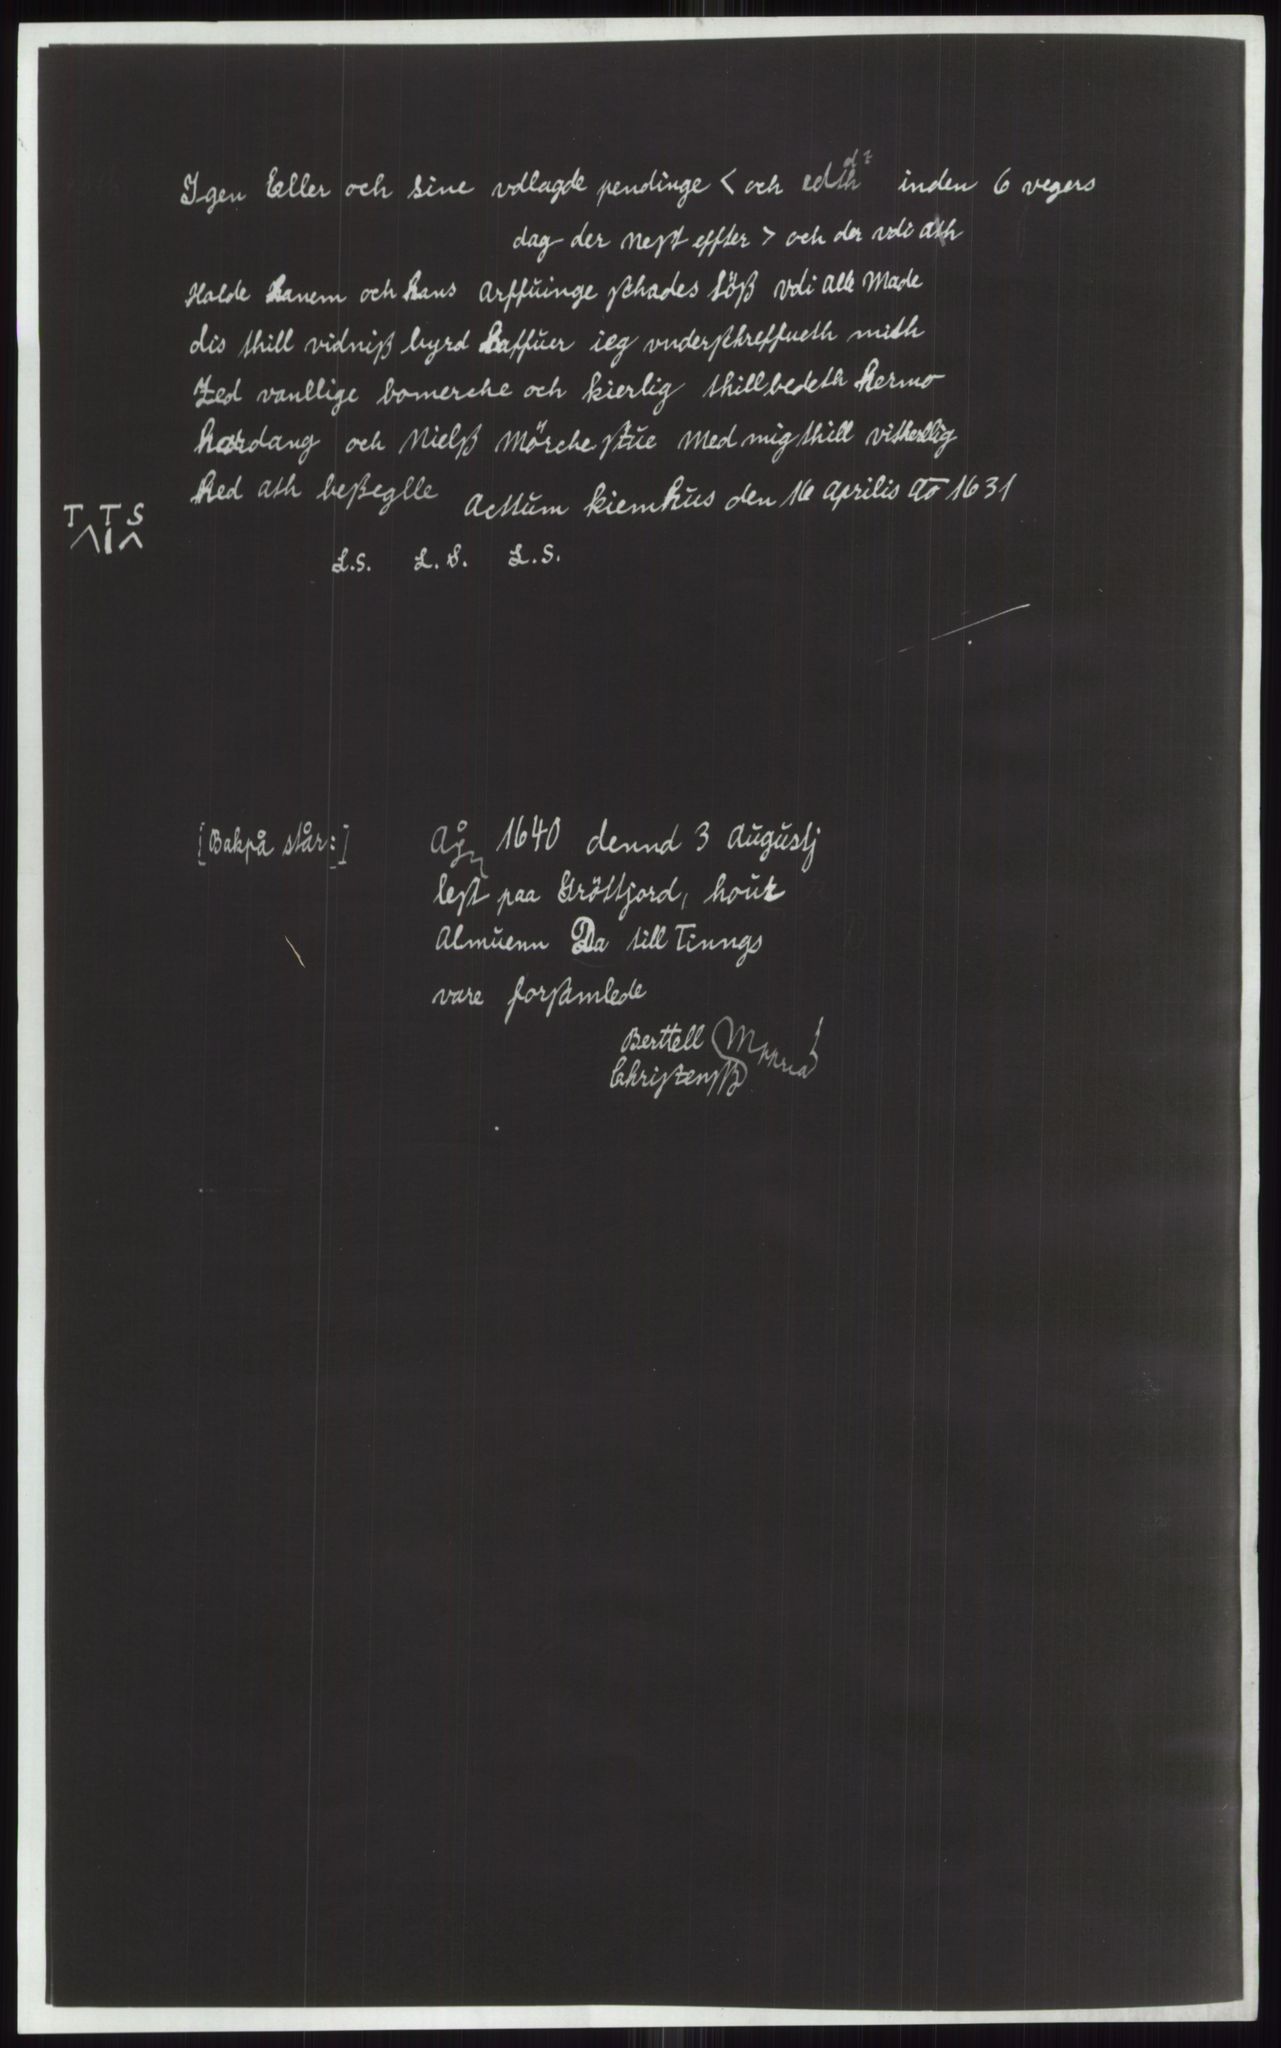 Igen Eller och sine vdlagde pendinge < och edth inden 6 vegers
d?
dag der neſt effter > och der vdi ath
Halde hanem och hans arffŭinge ſkades löß vdi alle made
dis thill vidniß byrd haffŭer ieg vnderſkreffueth mith
Zed vanllige bomerche och kierlig thillbedeth hermo
hordang och Nielß Mörche ſtŭe med mig thill vitherlig
hed ath beßeglle Acttŭm kiemhŭs den 16 Aprilis Ao 1631
T T S
L.S. L.S. L.S.
[Bakpå står:] 1640 dennd 3 Aŭgŭstj
leſt paa Gröttjord,
Almŭenn Da till Tinngs
vare forſamlede
Berttell
Chriſtenſß